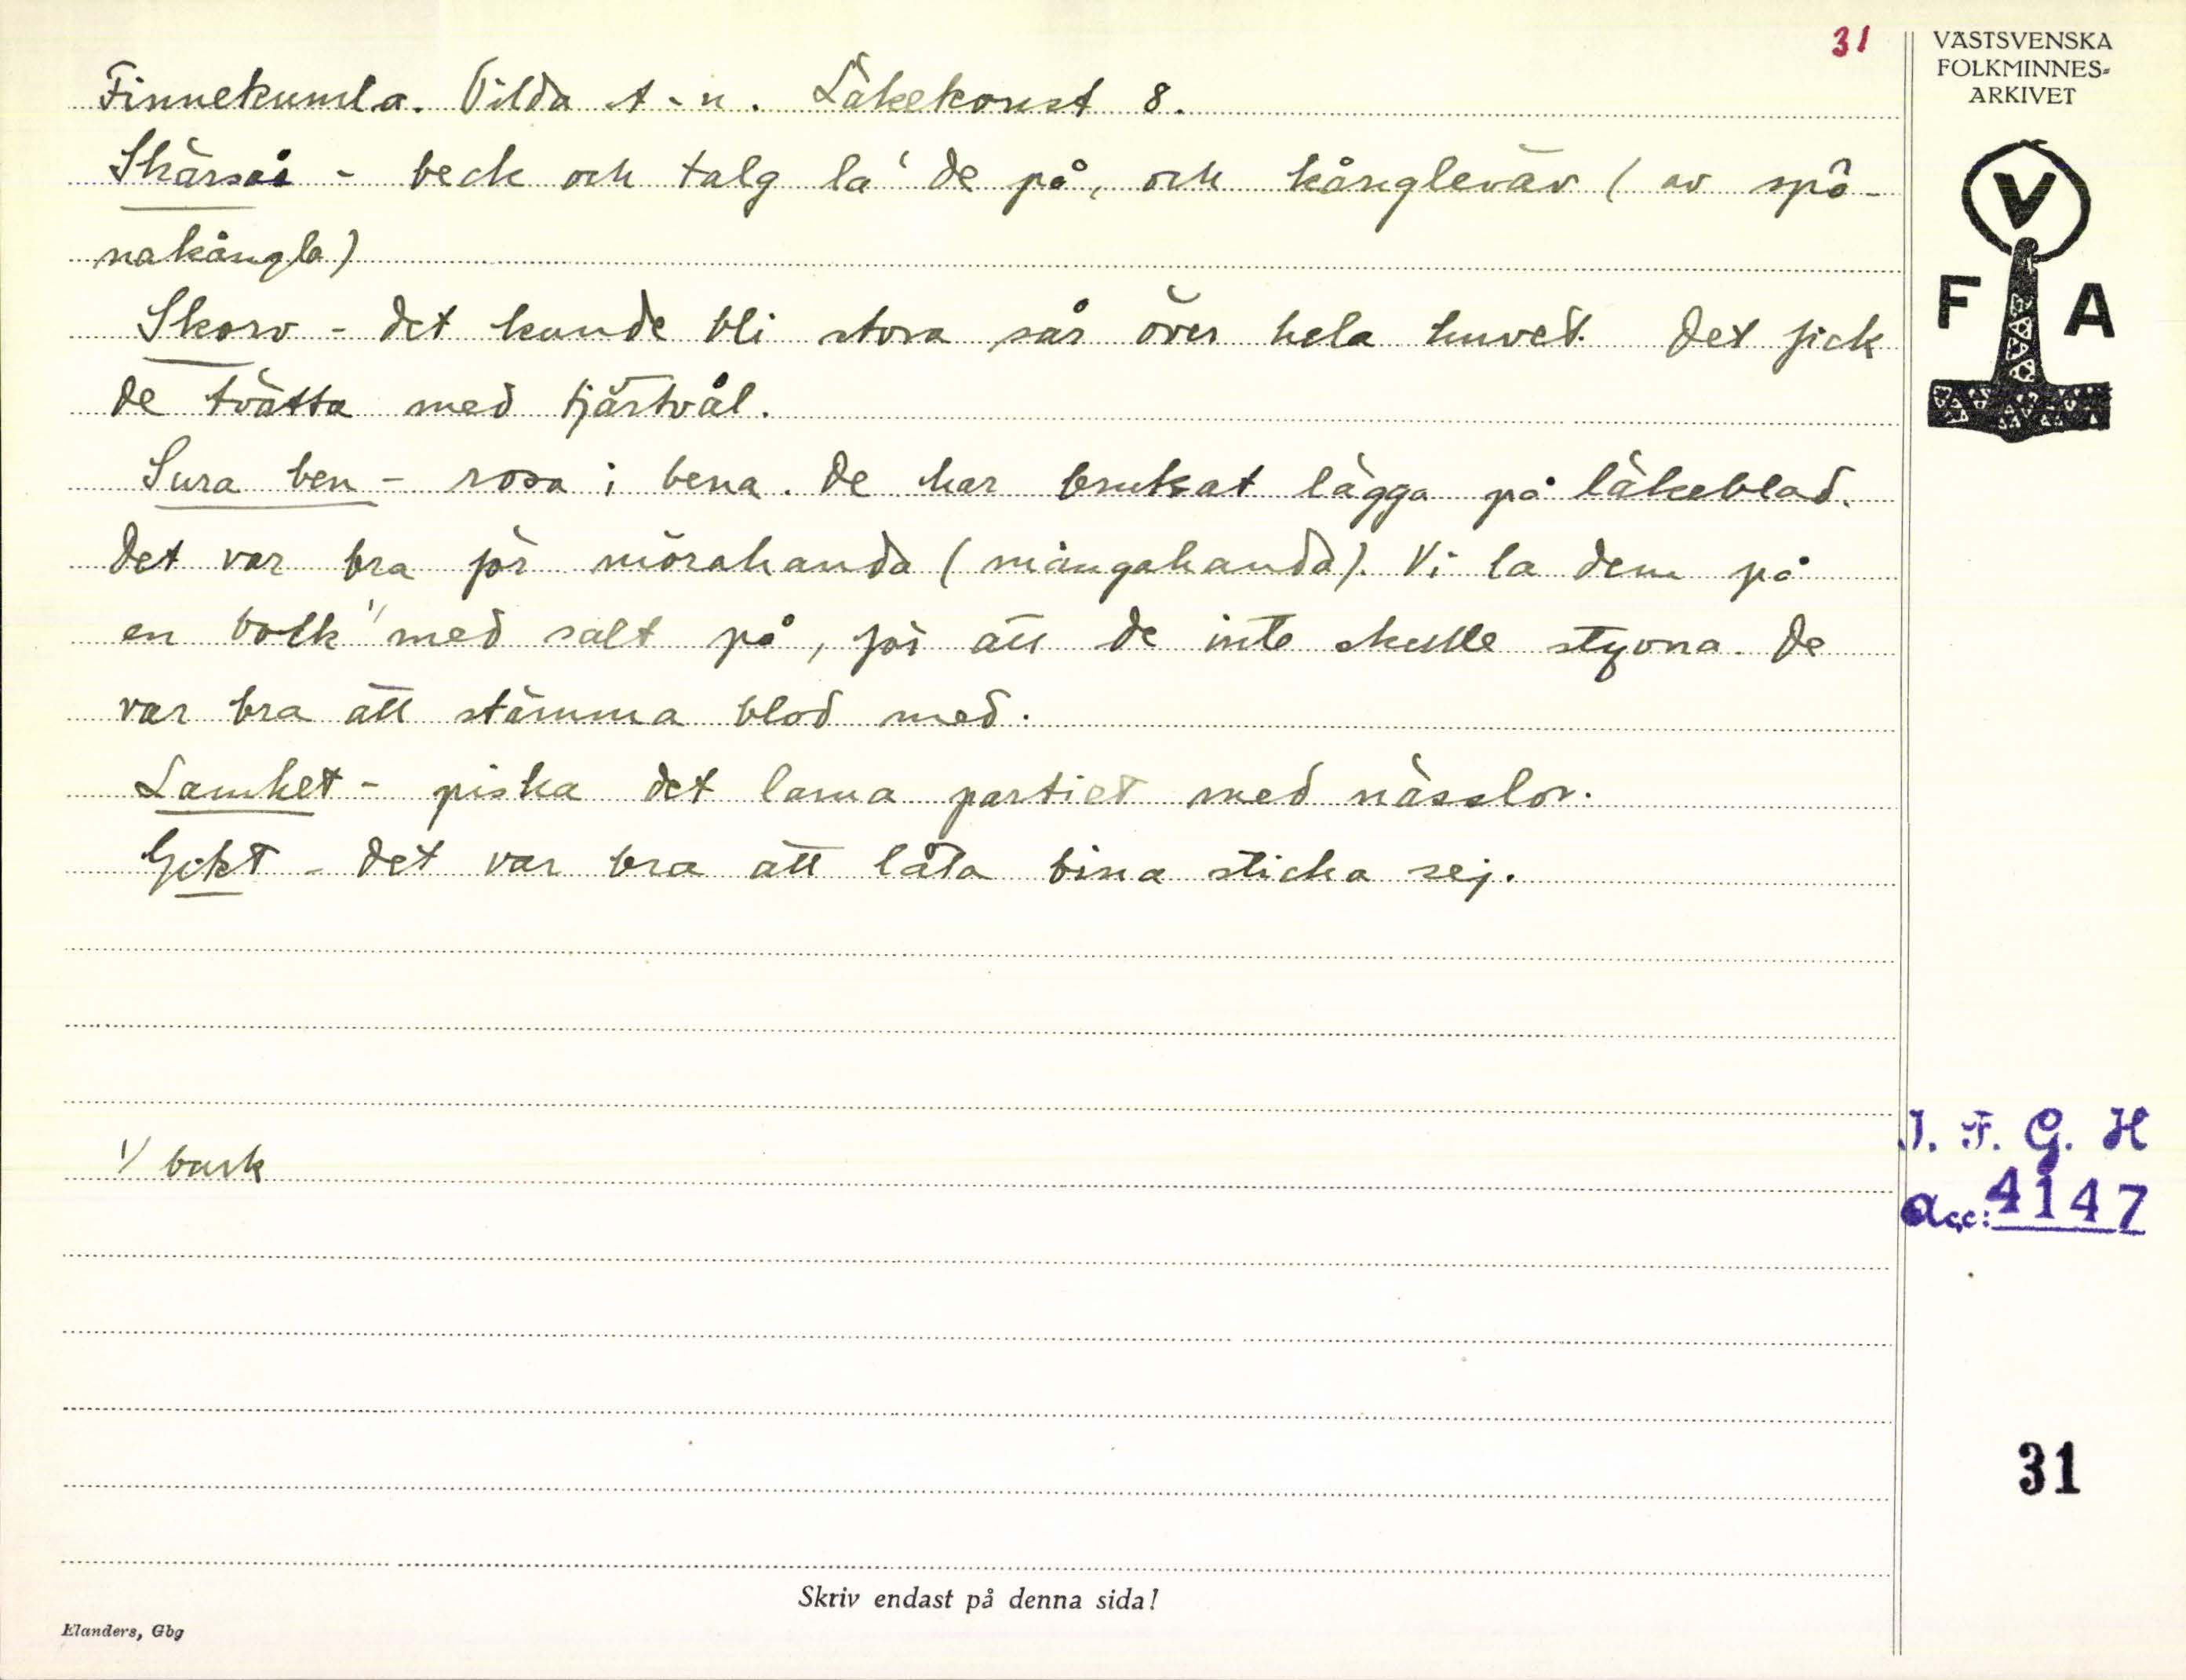 31
VÄSTSVENSKA
FOLKMINNES-
ARKIVET
V
F A
Finnekumla. Vilda A-n. Läkekonst 8.
Skärsår - beck och talg la' de på, och kångleväv (av spå-
nakångla)
Skorv - det kunde bli stora sår över hela huvet. Det fick
de tvätta med tjärtvål.
Sura ben - rosa i bena. De har brukat lägga på läkeblad.
Det var bra för mörahanda (mångahanda). Vi la dem på
en botk 1/ med salt på, för att de inte skulle styvna. De
var bra att stämma blod med.
Lamhet - piska det lama partiet med nässlor.
Gikt - det var bra att låta bina sticka sej.
1/ burk
I. F. G. H
Acc: 4147
31
Skriv endast på denna sida!
Elanders, Gbg